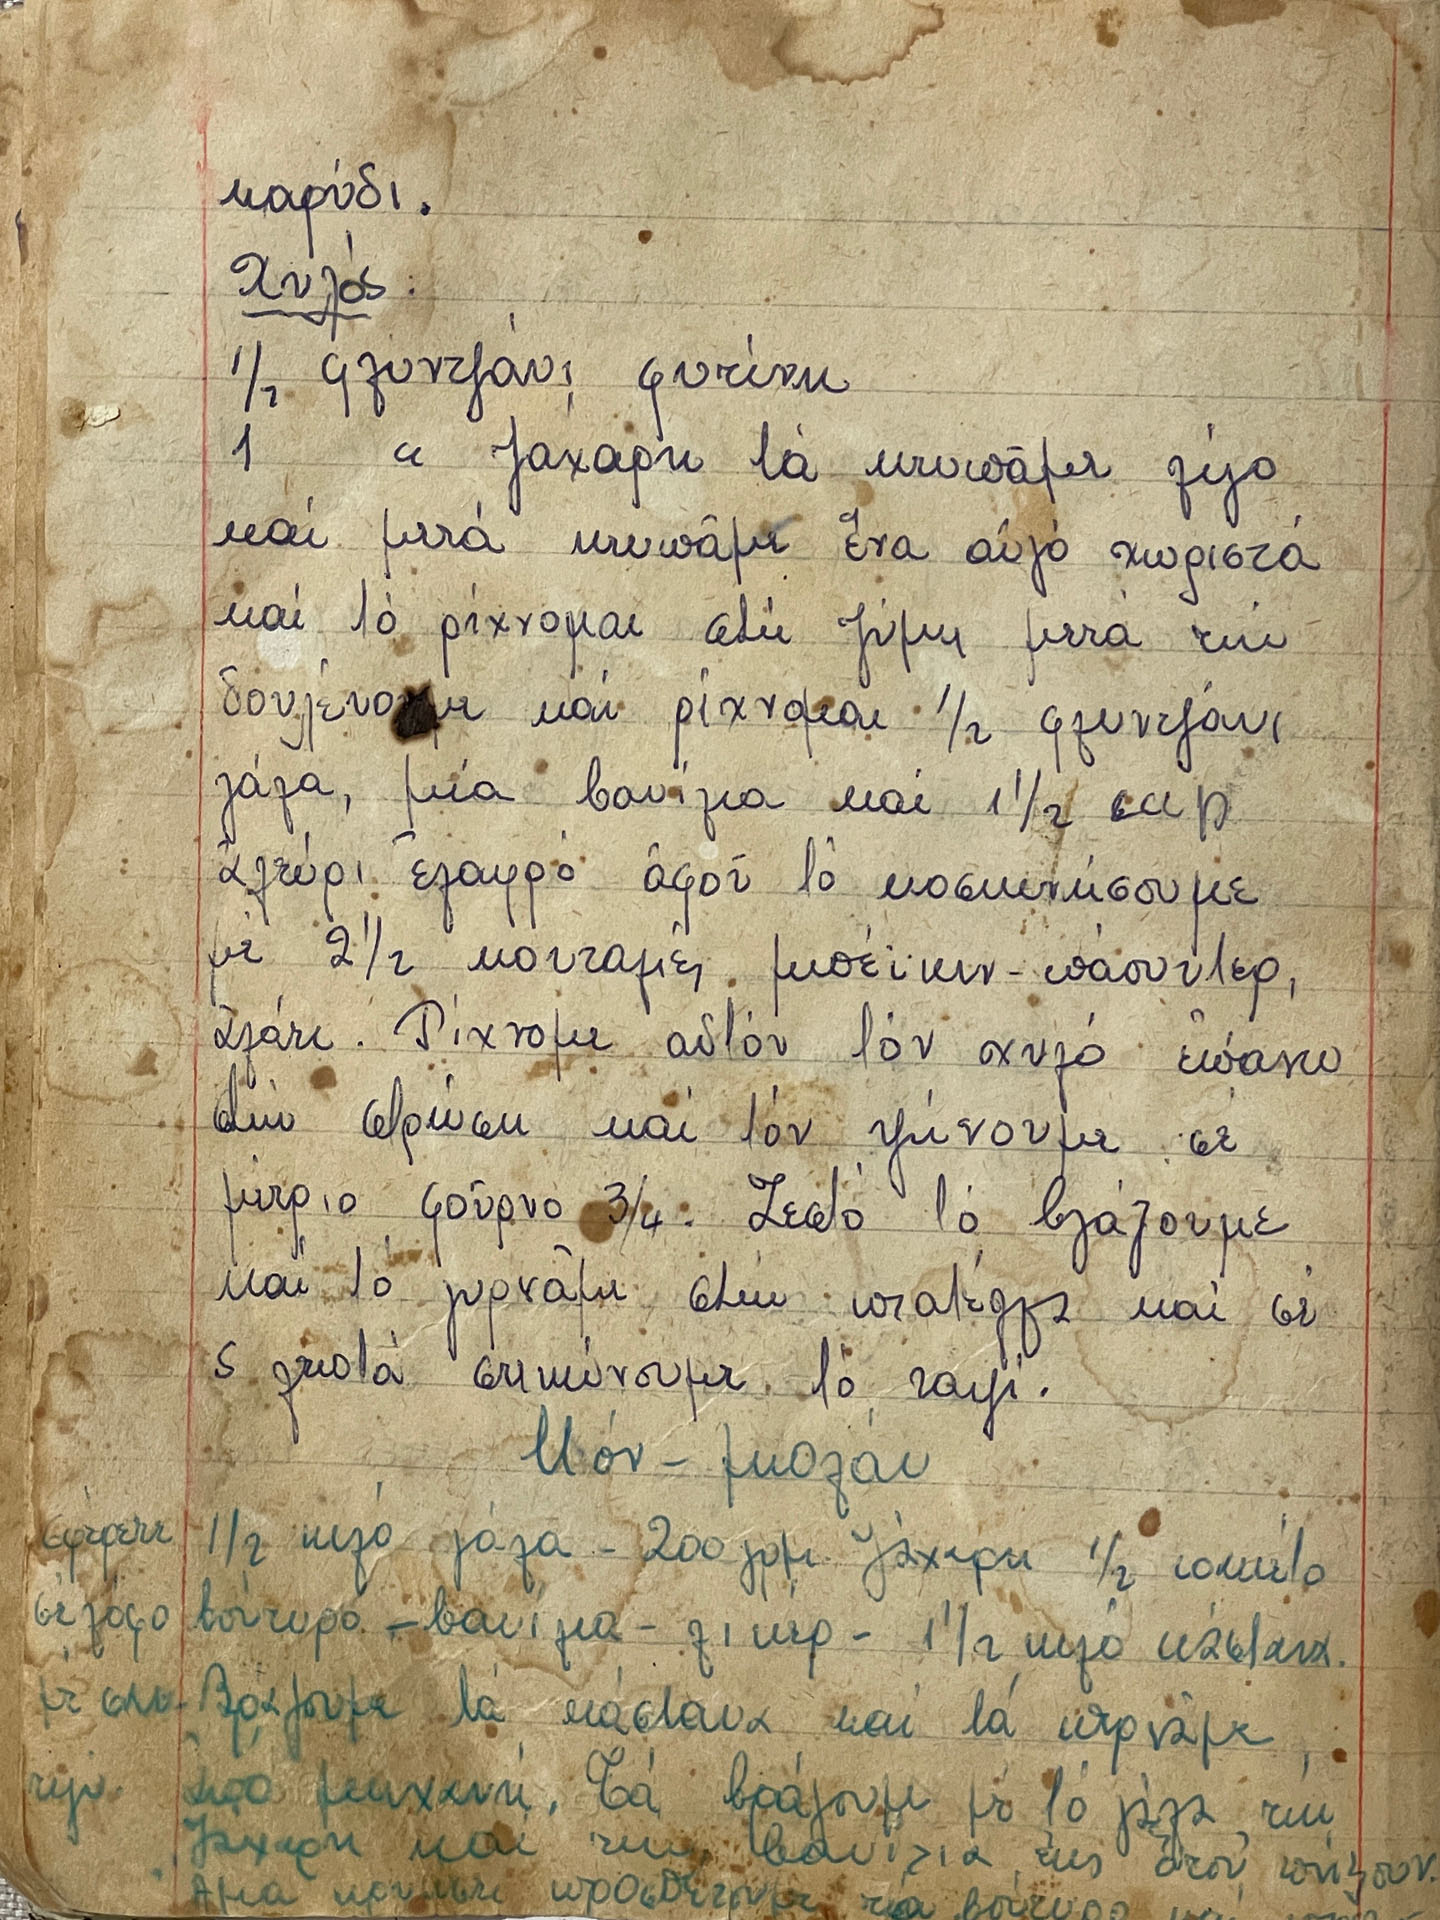 καρύδι.
Χυλός:
1/2 φλυντζάνι φυτίνη
1 " ζάχαρη τά κτυπᾶμε λίγο
καί μετά κτυπᾶμε ἕνα αὐγό χωριστά
καί τό ρίχνομαι στή ζύμη μετά τήν
δουλεύομε καί ρίχνομαι 1/2 φλυντζάνι
γάλα, μία βανίλια καί 1 1/2 cup
ἀλεύρι ἐλαφρό ἀφοῦ τό κοσκινήσουμε
μέ 2 1/2 κουταλιές μπέικιν-πάουντερ,
ἀλάτι. Ρίχνομε αὐτόν τόν χυλό ἐπάνω
στήν στρώση καί τόν ψήνουμε σέ
μέτριο φοῦρνο 3/4. Ζεστό τό βγάζουμε
καί τό γυρνᾶμε στήν πιατέλλα καί σέ
5 λεπτά σηκώνουμε τό ταψί.
Μόν-μπλάν
1/2 κιλό γάλα - 200 γρμ ζάχαρη 1/2 πακέτο
σέ λόφο βούτυρο - βανίλια - λικέρ - 1 1/2 κιλό κάστανα.
Βράζουμε τά κάστανα καί τά περνᾶμε
ἀπό μηχανή. Τά βράζουμε μέ τό γάλα τή
ζάχαρη καί τήν βανίλια ἕως ὅτου πήξουν.
Ἅμα προσθέτουμε τό βούτυρο καί